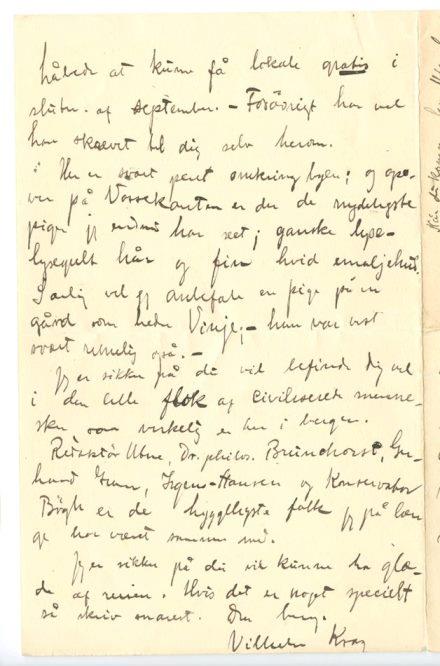 håbede at kunne få lokale gratis i
slutn. af september. – Forøvrigt har vel
han skrevet til dig selv herom.
Her er svært pent omkring byen; og ope-
ver på Vossekanten er der de nydeligste
piger jeg endnu har seet; ganske lyse-
lysegult hår og fin hvid emaljehud.
Særlig vil jeg anbefale en pige på en
gård som heder Vinje; – hun var vist
svært rimelig også. –
Jeg er sikker på du vil befinde dig vel
i den lille flok af civiliserede menne-
sker som virkelig er her i bergen.
Redaktør Dr. philos. Brunchorst, Ger-
hard Gran, Irgens-Hansen og Konservator
Bøgh er de hyggeligste folk jeg på læn
ge har været sammen med.
Jeg er sikker på du vil kunne ha glæ-
de af reisen. Hvis det er noget specielt
så skriv snarest. Din
Vilhelm Krag